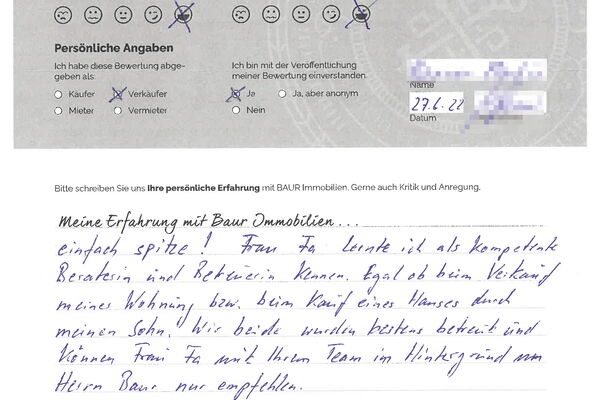 Persönliche Angaben
Ich habe diese Bewertung abge-
geben als:
Käufer
Verkäufer
Mieter
Vermieter
Ich bin mit der Veröffentlichung
meiner Bewertung einverstanden.
Ja
Ja, aber anonym
Nein
Name
27.6.22
Datum
Bitte schreiben Sie uns Ihre persönliche Erfahrung mit BAUR Immobilien. Gerne auch Kritik und Anregung.
Meine Erfahrung mit Baur Immobilien...
einfach spitze! Frau Fa lernte ich als kompetente
Beraterin und Betreuerin kennen. Egal ob beim Verkauf
meiner Wohnung bzw. beim Kauf eines Hauses durch
meinen Sohn. Wir beide wurden bestens betreut und
können Frau Fa mit Ihrem Team im Hintergrund um
Herrn Baur nur empfehlen.